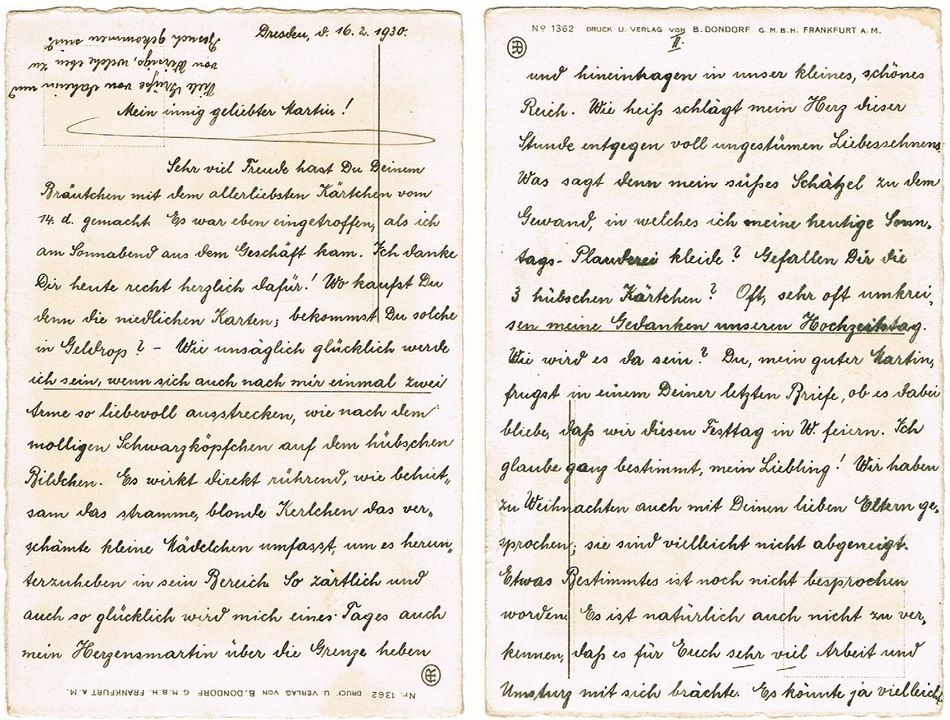 Dresden, d. 16.2.1930.
Viele Grüße von daheim und
von Wirings, welche eben zu
Besuch gekommen sind.
Mein innig geliebter Martin!
Sehr viel Freude hast Du Deinem
Bräutchen mit dem allerliebsten Kärtchen vom
14. d. gemacht. Es war eben eingetroffen, als ich
am Sonnabend aus dem Geschäft kam. Ich danke
Dir heute recht herzlich dafür! Wo kaufst Du
denn die niedlichen Karten; bekommst Du solche
in Geldrop? – Wie unsäglich glücklich werde
ich sein, wenn sich auch nach mir einmal zwei
Arme so liebevoll ausstrecken, wie nach dem
molligen Schwarzköpfchen auf dem hübschen
Bildchen. Es wirkt direkt rührend, wie behut-
sam das stramme, blonde Kerlchen das ver-
schämte kleine Mädelchen umfasst, um es herun-
terzuheben in sein Bereich. So zärtlich und
auch so glücklich wird mich eines Tages auch
mein Herzensmartin über die Grenze heben
Nr. 1362 DRUCK U. VERLAG VON B. DONDORF G.M.B.H. FRANKFURT A.M.
Nº 1362 DRUCK U. VERLAG VON B. DONDORF G.M.B.H. FRANKFURT A.M.
II.
und hineintragen in unser kleines, schönes
Reich. Wie heiß schlägt mein Herz dieser
Stunde entgegen voll ungestümen Liebessehnens
Was sagt denn mein süßes Schätzel zu dem
Gewand, in welches ich meine heutige Sonn-
tags-Plauderei kleide? Gefallen Dir die
3 hübschen Kärtchen? Oft, sehr oft umkrei-
sen meine Gedanken unseren Hochzeitstag.
Wie wird es da sein? Du, mein guter Martin,
frugst in einem Deiner letzten Briefe, ob es dabei
bliebe, daß wir diesen Festtag in W. feiern. Ich
glaube ganz bestimmt, mein Liebling! Wir haben
zu Weihnachten auch mit Deinen lieben Eltern ge-
sprochen; sie sind vielleicht nicht abgeneigt.
Etwas Bestimmtes ist noch nicht besprochen
worden. Es ist natürlich auch nicht zu ver-
kennen, daß es für Euch sehr viel Arbeit und
Umsturz mit sich brächte. Es könnte ja vielleicht